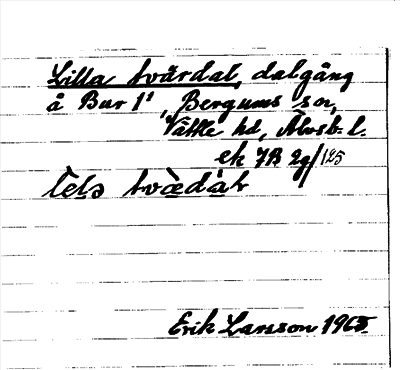 Lilla tvärdal, dalgång
å Bur 1¹, Bergums sn,
Vättle hd, Älvsb. l.
ek 7B 2g/125
lɛ̀lə tvæ̀dàɫ
Erik Larsson 1965